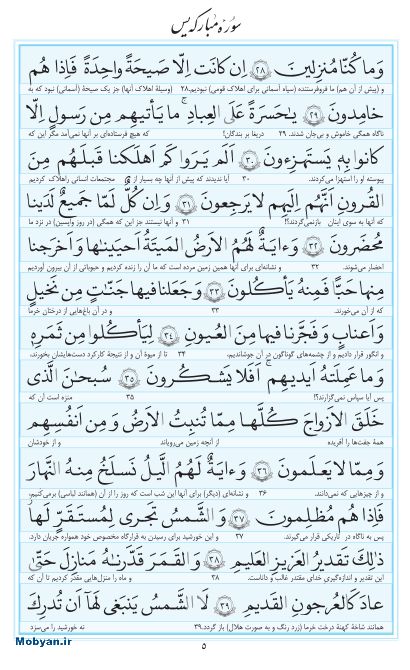 سورهٔ مبارکه یس
وَمَا کُنَّا مُنزِلِینَ ﴿۲۸﴾ اِن کَانَت اِلّا صَیحَةً واحِدَةً فَاِذا هُم
و (پیش از آن هم) ما فروفرستنده (سپاه آسمانی برای اهلاک اقوامی) نبودیم.۲۸ (وسیلهٔ اهلاک آنها) جز یک صیحهٔ (آسمانی) نبود که به
خامِدونَ ﴿۲۹﴾ یٰحَسرَةً عَلَی العِبادِ ۚ ما یَأتیهِم مِن رَسولٍ اِلّا
ناگاه همگی خاموش و بی‌جان شدند. ۲۹ دریغا بر بندگان! که هیچ فرستاده‌ای بر آنها نمی‌آمد مگر این که
کانوا بِهٖ یَستَهزِءونَ ﴿۳۰﴾ اَلَم یَرَوا کَم اَهلَکنا قَبلَهُم مِنَ
پیوسته او را استهزا می‌کردند. ۳۰ آیا ندیدند که پیش از آنها چه بسیار از مجتمعات انسانی را هلاک کردیم
القُرونِ اَنَّهُم اِلَیهِم لا یَرجِعونَ ﴿۳۱﴾ وَ اِن کُلٌّ لَمّا جَمیعٌ لَدَینا
که آنها به سوی اینان بازنمی‌گردند؟! ۳۱ و آنها نیستند جز این که همگی (در روز واپسین) در نزد ما
مُحضَرونَ ﴿۳۲﴾ وَ ءایَةٌ لَهُمُ الاَرضُ المَیتَةُ اَحیَینٰها وَ اَخرَجنا
احضار می‌شوند. ۳۲ و نشانه‌ای برای آنها همین زمین مرده است که ما آن را زنده کردیم و حبوباتی از آن بیرون آوردیم
مِنها حَبًّا فَمِنهُ یَأکُلونَ ﴿۳۳﴾ وَ جَعَلنا فیها جَنّٰتٍ مِن نَخیلٍ
که از آن می‌خورند. ۳۳ و در آن باغ‌هایی از درختان خرما
وَ اَعنابٍ وَ فَجَّرنا فیها مِنَ العُیونِ ﴿۳۴﴾ لِیَأکُلوا مِن ثَمَرِهٖ
و انگور قرار دادیم و از چشمه‌های گوناگون در آن جوشاندیم. ۳۴ تا از میوهٔ آن و از نتیجهٔ کارکرد دست‌هایشان بخورند.
وَ ما عَمِلَتهُ اَیدیهِم ۖ اَفَلا یَشکُرونَ ﴿۳۵﴾ سُبحٰنَ الَّذی
پس آیا سپاس نمی‌گزارند؟! ۳۵ منزه است آن که
خَلَقَ الاَزواجَ کُلَّها مِمّا تُنبِتُ الاَرضُ وَ مِن اَنفُسِهِم
همهٔ جفت‌ها را آفریده از آنچه زمین می‌رویاند و از خودشان
وَ مِمّا لا یَعلَمونَ ﴿۳۶﴾ وَ ءایَةٌ لَهُمُ الَّیلُ نَسلَخُ مِنهُ النَّهارَ
و از چیزهایی که نمی‌دانند. ۳۶ و نشانه‌ای (دیگر) برای آنها این شب است که روز را از آن (همانند لباسی) برمی‌کنیم،
فَاِذا هُم مُظلِمونَ ﴿۳۷﴾ وَ الشَّمسُ تَجری لِمُستَقَرٍّ لَها ۚ
پس به ناگاه در تاریکی قرار می‌گیرند. ۳۷ و این خورشید برای رسیدن به قرارگاه مخصوص خود همواره جریان دارد.
ذٰلِکَ تَقدیرُ العَزیزِ العَلیمِ ﴿۳۸﴾ وَ القَمَرَ قَدَّرنٰهُ مَنازِلَ حَتّیٰ
این تقدیر و اندازه‌گیری خدای مقتدر غالب و داناست. ۳۸ و ماه را منزل‌هایی مقدر کردیم تا آن که
عادَ کَالعُرجونِ القَدیمِ ﴿۳۹﴾ لَا الشَّمسُ یَنبَغی لَها اَن تُدرِکَ
همانند شاخهٔ کهنهٔ درخت خرما (زرد رنگ و به صورت هلال) باز گردد.۳۹ نه خورشید را می‌سزد
۵
Mobyan.ir